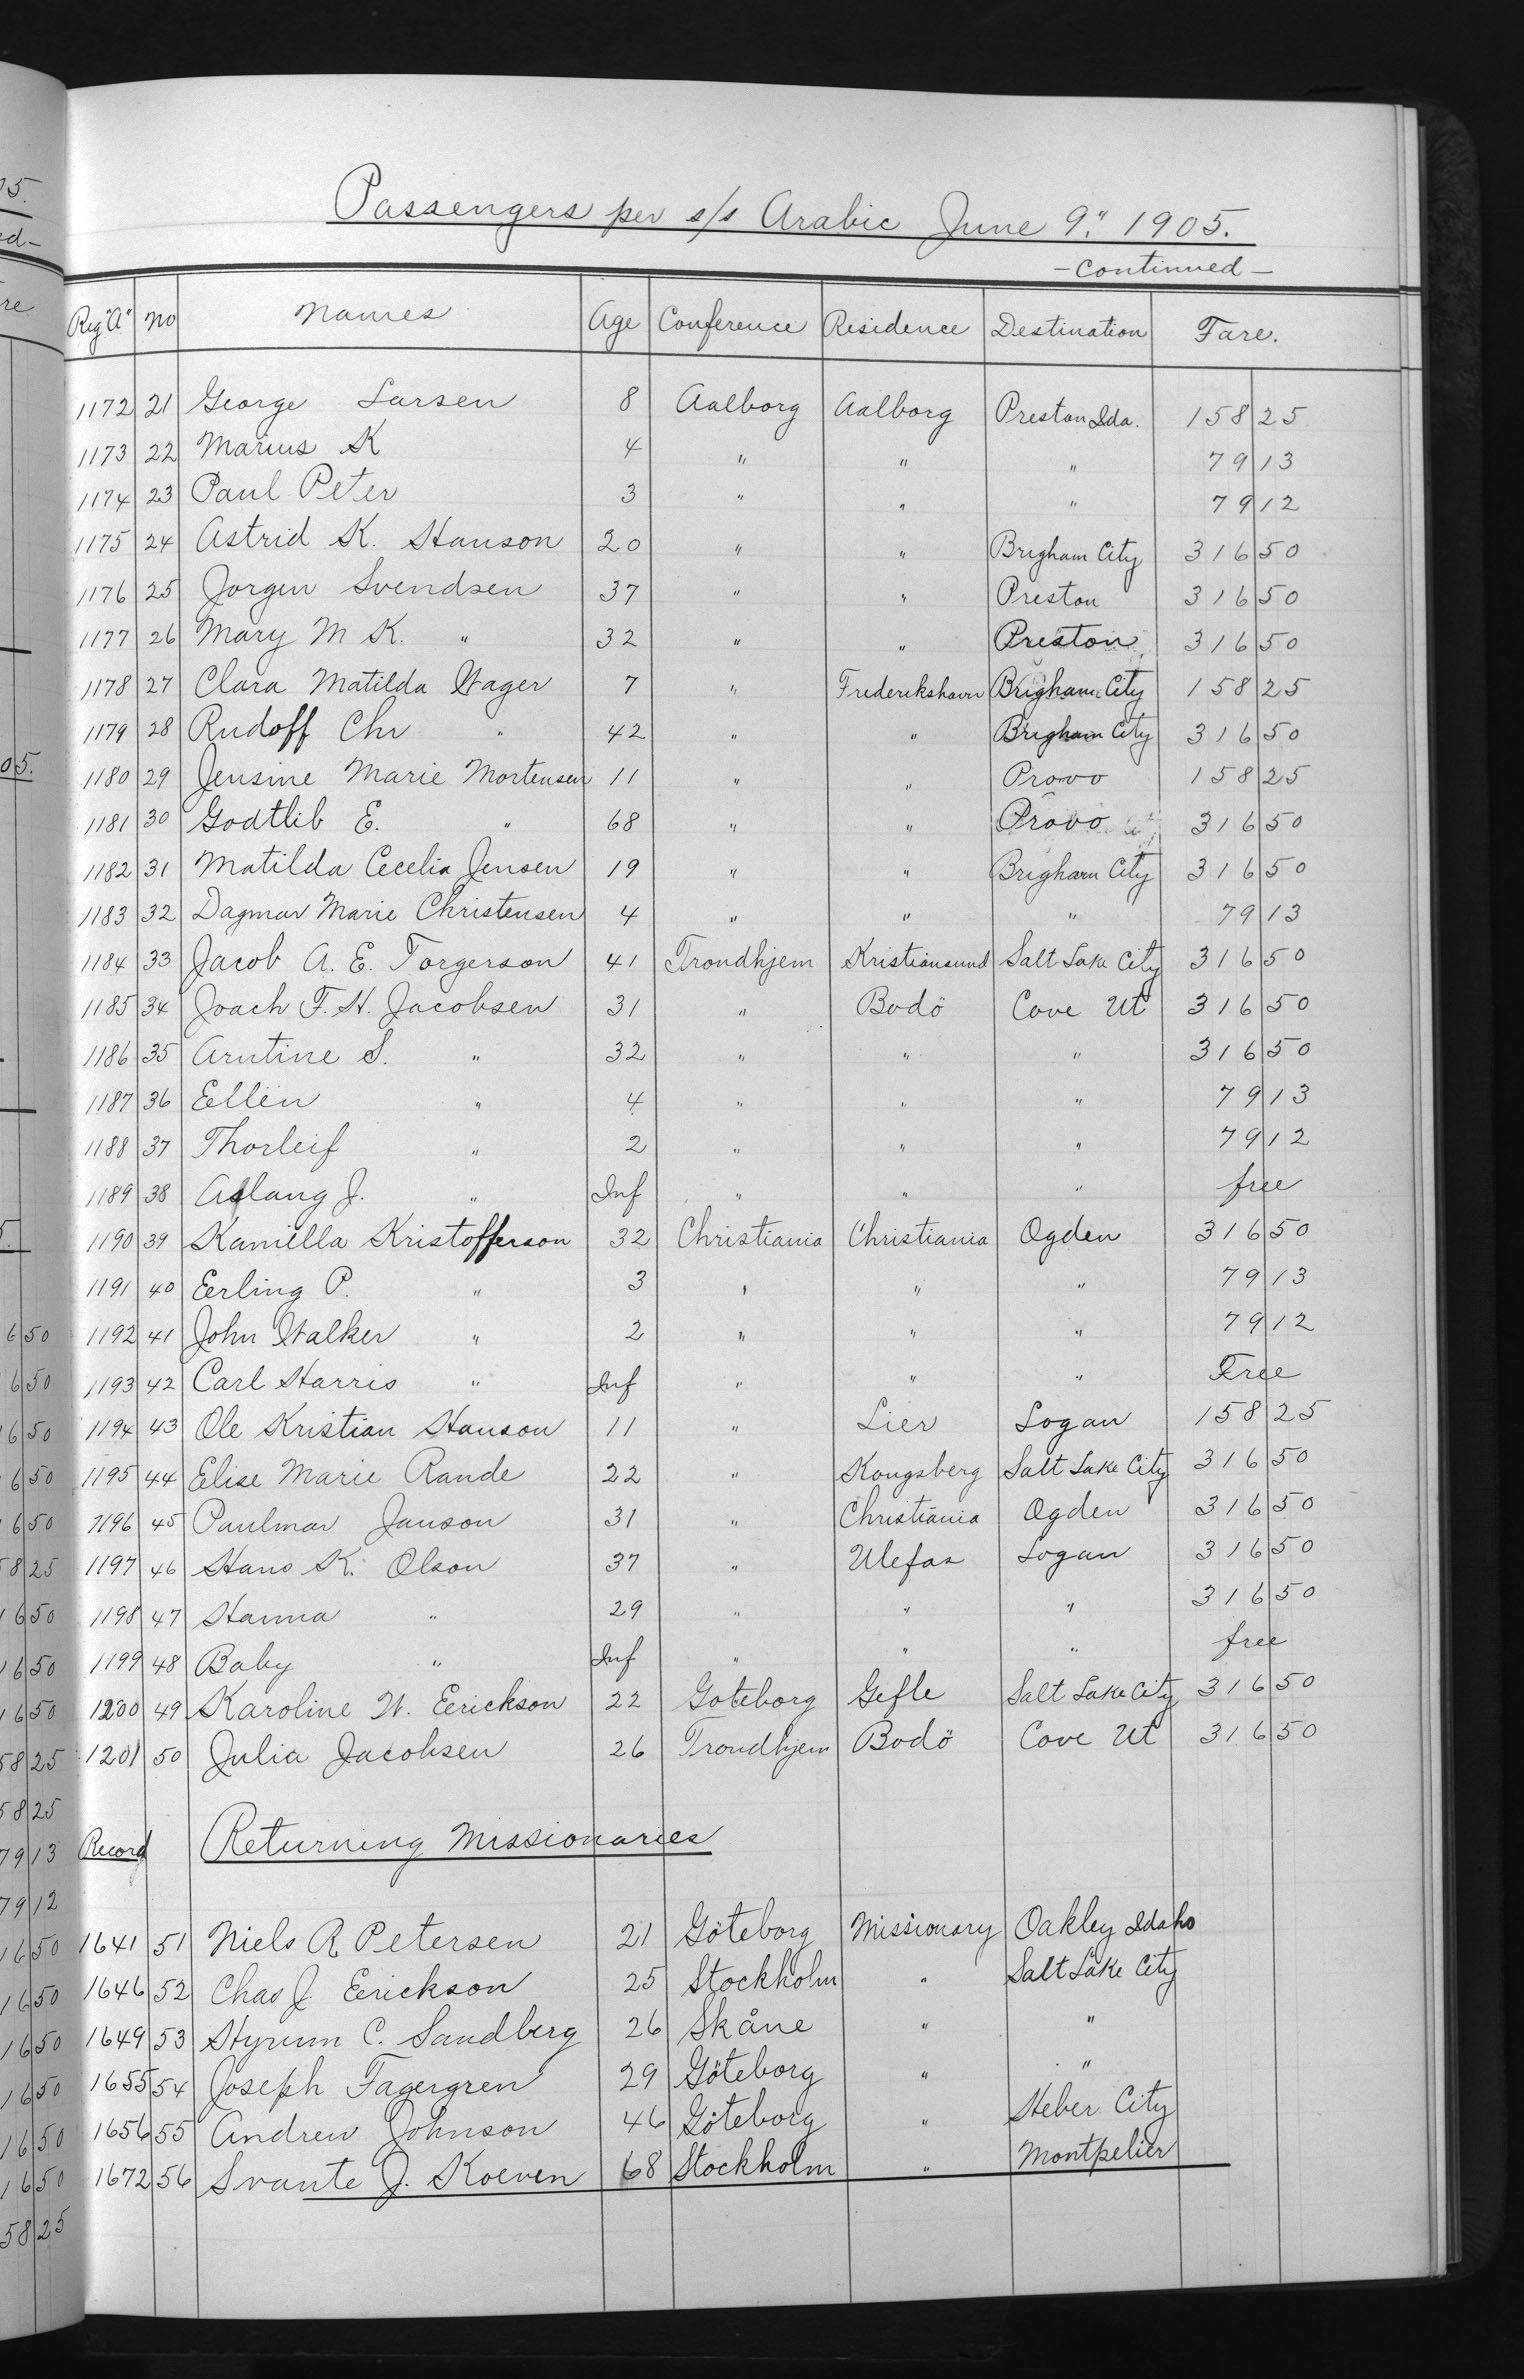 Passengers per s/s Arabic June 9." 1905.
- Continued -
Reg "A" No Names Age Conference Residence Destination Fare.
1172 21 George Larsen 8 Aalborg Aalborg Preston Ida. 158 25
1173 22 Marius K 4 " " " 79 13
1174 23 Paul Peter 3 " " " 79 12
1175 24 Astrid K. Hanson 20 " " Brigham City 316 50
1176 25 Jorgen Svendsen 37 " " Preston 316 50
1177 26 Mary M K. " 32 " " Preston 316 50
1178 27 Clara Matilda Wager 7 " Frederikshavn Brigham City 158 25
1179 28 Rudoff Chr " 42 " " Brigham City 316 50
1180 29 Jensine Marie Mortensen 11 " " Provo 158 25
1181 30 Godtlib E. " 68 " " Provo 316 50
1182 31 Matilda Cecelia Jensen 19 " " Brigham City 316 50
1183 32 Dagmar Marie Christensen 4 " " " 79 13
1184 33 Jacob A. E. Torgerson 41 Trondhjem Kristiansund Salt Lake City 316 50
1185 34 Joach F. H. Jacobsen 31 " Bodö Cove Ut 316 50
1186 35 Arntine S. " 32 " " " 316 50
1187 36 Ellen " 4 " " " 79 13
1188 37 Thorleif " 2 " " " 79 12
1189 38 Aslaug J. " Inf " " " free
1190 39 Kamilla Kristofferson 32 Christiania Christiania Ogden 316 50
1191 40 Eerling P. " 3 " " " 79 13
1192 41 John Walker " 2 " " " 79 12
1193 42 Carl Harris " Inf " " " Free
1194 43 Ole Kristian Hanson 11 " Lier Logan 158 25
1195 44 Elise Marie Rande 22 " Kongsberg Salt Lake City 316 50
1196 45 Paulmar Janson 31 " Christiania Ogden 316 50
1197 46 Hans K. Olson 37 " Ulefas Logan 316 50
1198 47 Hanna " 29 " " " 316 50
1199 48 Baby " Inf " " " free
1200 49 Karoline W. Eerickson 22 Goteborg Gefle Salt Lake City 316 50
1201 50 Julia Jacobsen 26 Trondhjem Bodö Cove Ut 316 50
Record Returning Missionaries
1641 51 Niels R Petersen 21 Göteborg Missionary Oakley Idaho
1646 52 Chas J. Eerickson 25 Stockholm " Salt Lake City
1649 53 Hyrum C. Sandberg 26 Skåne " "
1655 54 Joseph Fagergren 29 Göteborg " "
1656 55 Andrew Johnson 46 Göteborg " Heber City
1672 56 Svante J. Koeven 68 Stockholm " Montpelier